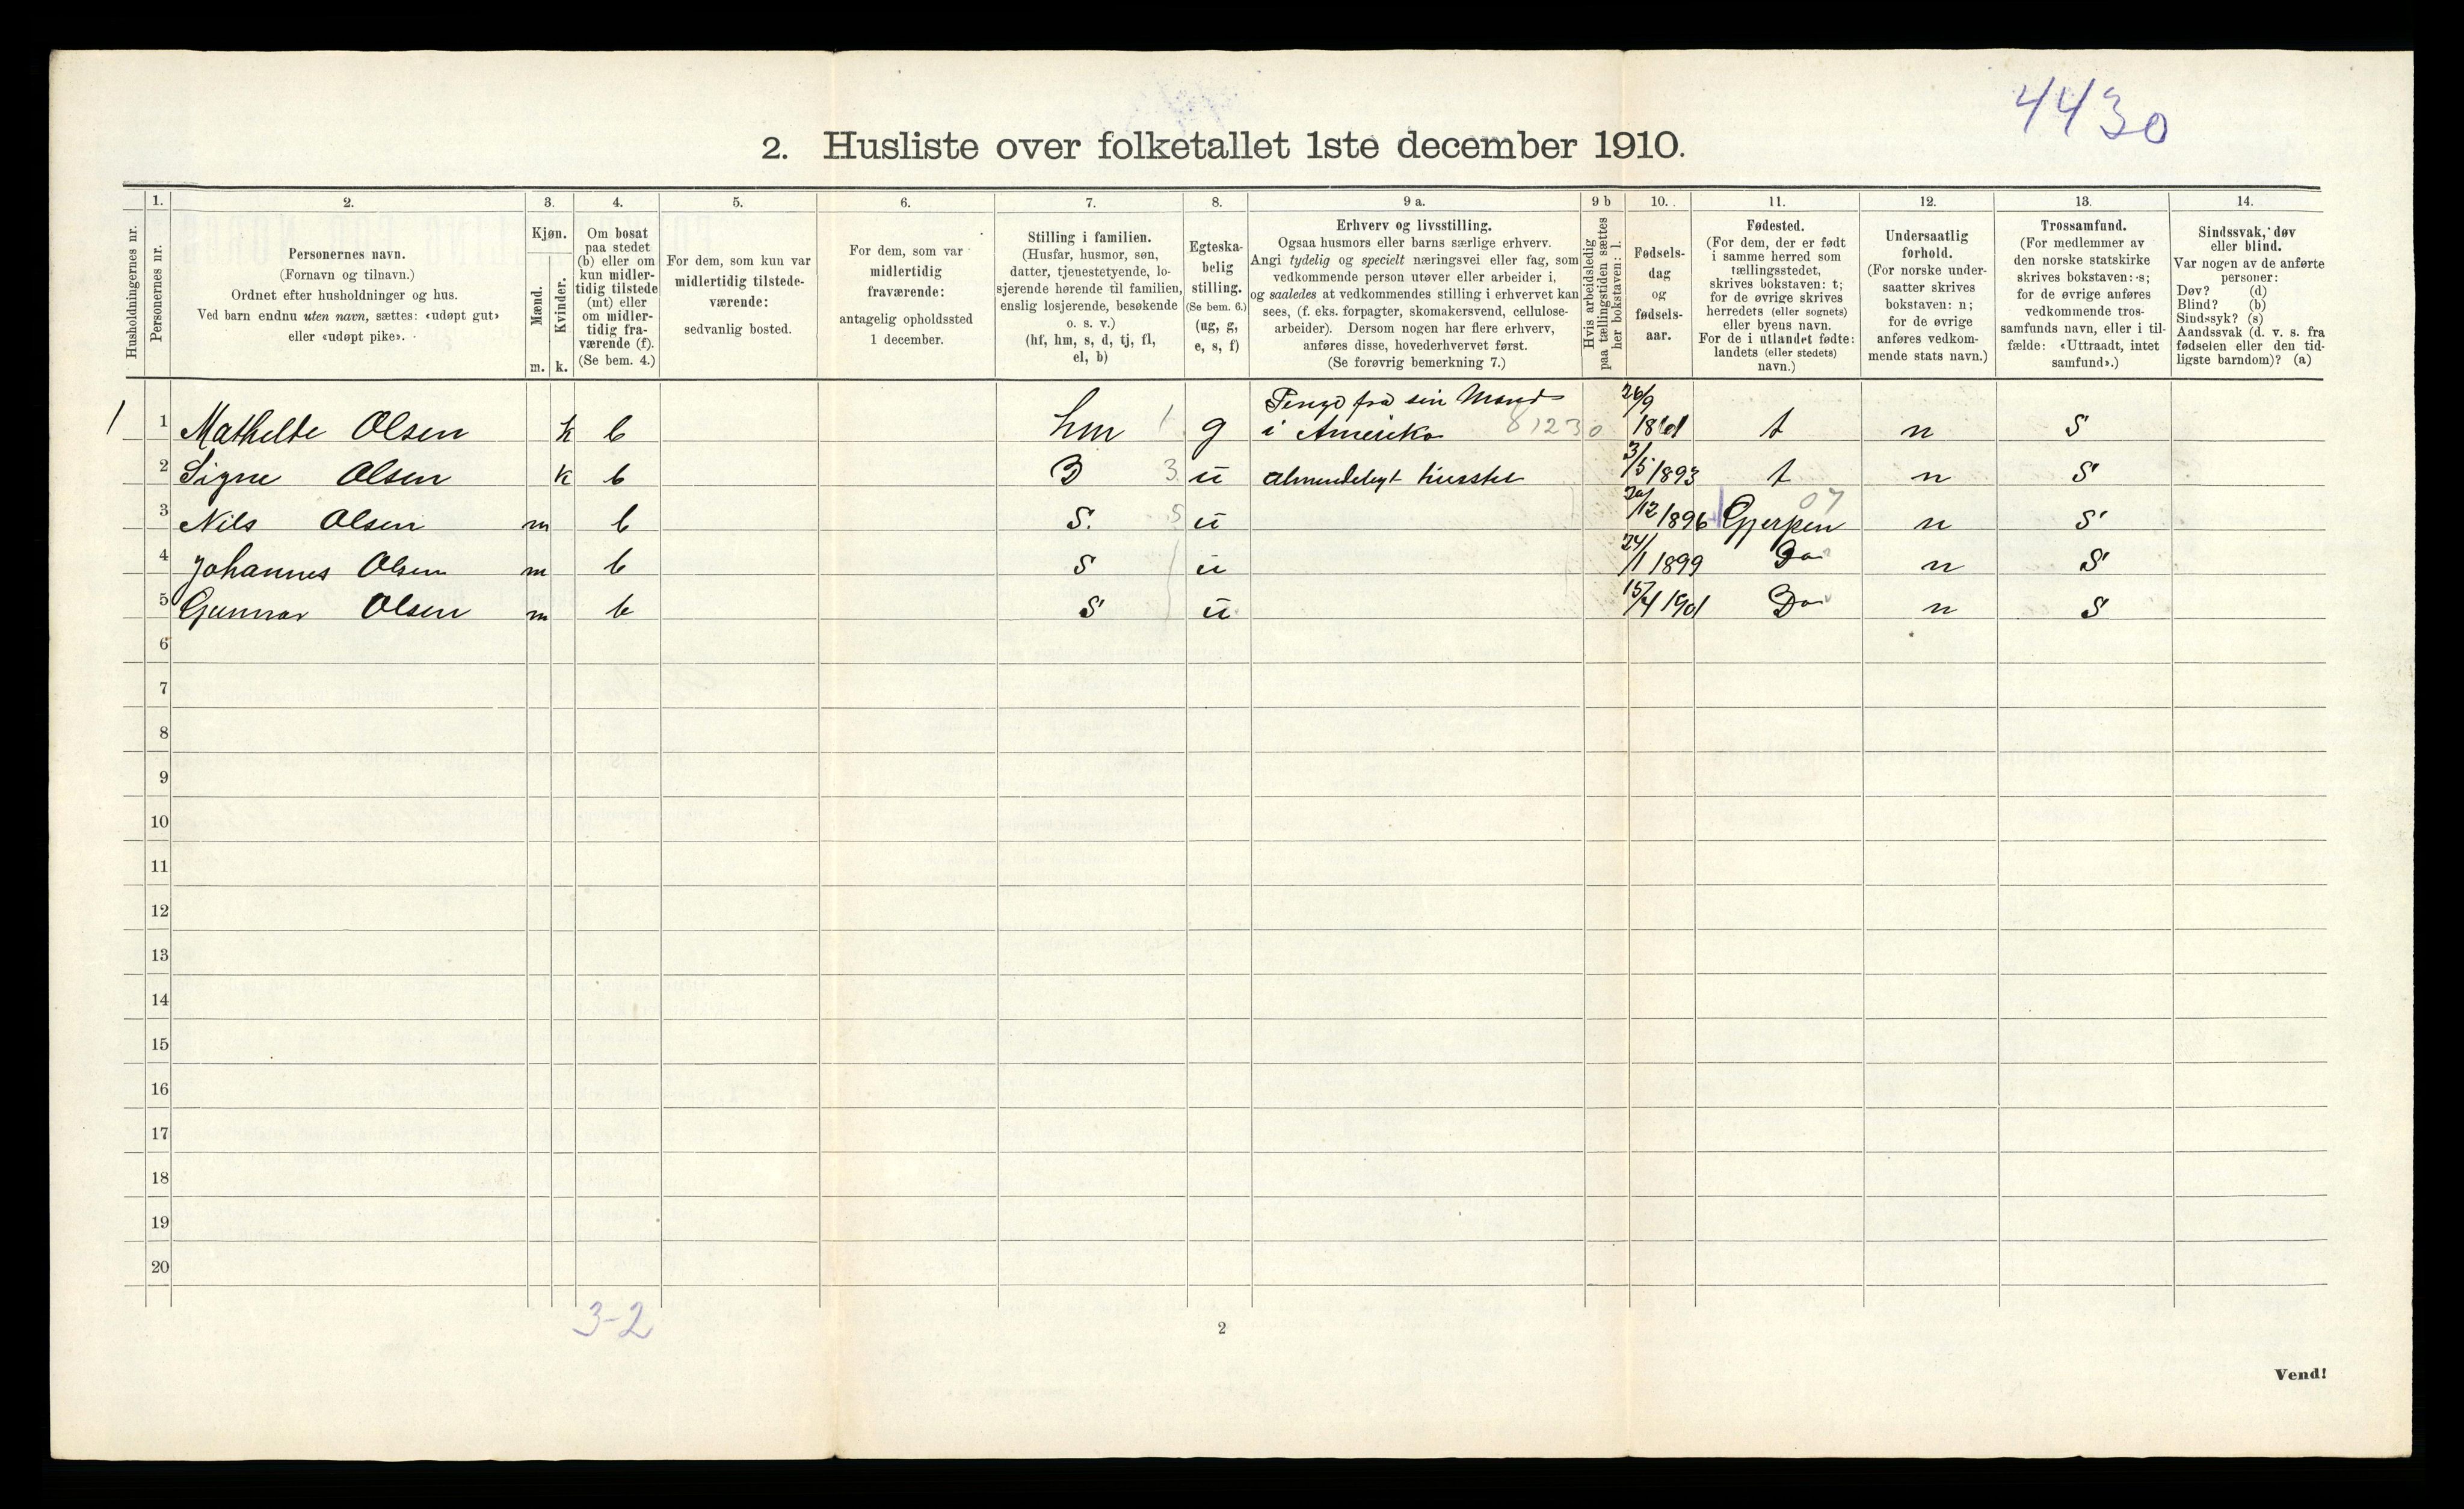 4430
2. Husliste over folketallet 1ste december 1910.
Husholdningernes nr.
1.
Personernes nr.
2.
Personernes navn.
(Fornavn og tilnavn.)
Ordnet efter husholdninger og hus.
Ved barn endnu uten navn, sættes: «udøpt gut»
eller «udøpt pike».
3.
Kjøn.
Mænd.
Kvinder.
m. k.
4.
Om bosat
paa stedet
(b) eller om
kun midler-
tidig tilstede
(mt) eller
om midler-
tidig fra-
værende (f).
(Se bem. 4.)
5.
For dem, som kun var
midlertidig tilstede-
værende:
sedvanlig bosted.
6.
For dem, som var
midlertidig
fraværende:
antagelig opholdssted
1 december.
7.
Stilling i familien.
(Husfar, husmor, søn,
datter, tjenestetyende, lo-
sjerende hørende til familien,
enslig losjerende, besøkende
o. s. v.)
(hf, hm, s, d, tj, fl,
el, b)
8.
Egteska-
belig
stilling.
(Se bem. 6.)
(ug, g,
e, s, f)
9 a.
Erhverv og livsstilling.
Ogsaa husmors eller barns særlige erhverv.
Angi tydelig og specielt næringsvei eller fag, som
vedkommende person utøver eller arbeider i,
og saaledes at vedkommendes stilling i erhvervet kan
sees, (f. eks. forpagter, skomakersvend, cellulose-
arbeider). Dersom nogen har flere erhverv,
anføres disse, hovederhvervet først.
(Se forøvrig bemerkning 7.)
9 b
Hvis arbeidsledig
paa tællingstiden sættes
her bokstaven: l.
10.
Fødsels-
dag
og
fødsels-
aar.
11.
Fødested.
(For dem, der er født
i samme herred som
tællingsstedet,
skrives bokstaven: t;
for de øvrige skrives
herredets (eller sognets)
eller byens navn.
For de i utlandet fødte:
landets (eller stedets)
navn.)
12.
Undersaatlig
forhold.
(For norske under-
saatter skrives
bokstaven: n;
for de øvrige
anføres vedkom-
mende stats navn.)
13.
Trossamfund.
(For medlemmer av
den norske statskirke
skrives bokstaven: s;
for de øvrige anføres
vedkommende tros-
samfunds navn, eller i til-
fælde: «Uttraadt, intet
samfund».)
14.
Sindssvak, døv
eller blind.
Var nogen av de anførte
personer:
Døv? (d)
Blind? (b)
Sindssyk? (s)
Aandssvak (d. v. s. fra
fødselen eller den tid-
ligste barndom)? (a)
1 1 Mathelde Olsen k b hm 1 g Penge fra sin Mand i Amerika 81230 26/9 1861 t n S
2 Signe Olsen k b D 3 u almindeligt husstel 3/5 1893 t n S
3 Nils Olsen m b S. 5 u 20/12 1896 Gjerpen 07 n S
4 Johannes Olsen m b S u 24/1 1899 Do n S
5 Gunnar Olsen m b S u 15/4 1901 Do n S
6
7
8
9
10
11
12
13
14
15
16
17
18
19
20
3-2
2
Vend!